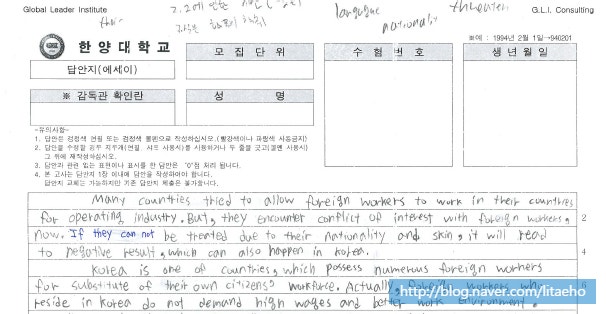 Global Leader Institute
G.L.I, Consulting
their
2.2에
language
nationality
threaten
한양대학교
답안지(에세이)
모집단위
수험번호
생년월일
※예 : 1994년 2월 1일→940201
※ 감독관 확인란
성 명
-유의사항-
1. 답안은 검정색 연필 또는 검정색 볼펜으로 작성하십시오.(빨강색이나 파랑색 사용금지)
2. 답안을 수정할 경우 지우개(연필, 샤프 사용시)를 사용하거나 두 줄을 긋고(볼펜 사용시)
그 위에 재작성하십시오.
3. 답안과 관련 없는 표현이나 표시를 한 답안은 "0"점 처리 됩니다.
4. 본 고사는 답안지 1장 이내에 답안을 작성하여야 합니다.
답안지 교체는 가능하지만 기존 답안지 제출은 불가합니다.
Many countries tried to allow foreign workers to work in their countries
for operating industry. But, they encounter conflict of interest with foreign workers, 2
now. If they can not be treated due to their nationality and skin, it will read
to negative result, which can also happen in Korea. 4
Korea is one of countries, which possess numerous foreign workers
for substitute of their own citizens' workforce. Actually, foreign workers who 6
reside in Korea do not demand high wages and better work environment.
http://blog.naver.com/litaeho